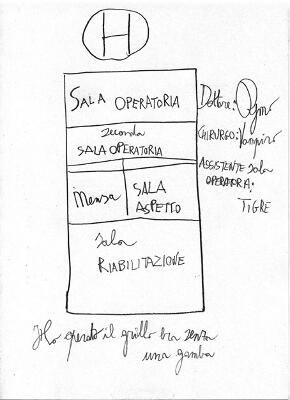 H
SALA OPERATORIA
Seconda
SALA OPERATORIA
Mensa
SALA
ASPETTO
Sala
RIABILITAZIONE
Dottore:
CHIRURGO: Vampiro
ASSISTENTE Sala
OPERATORIA:
TIGRE
Ho operato il grillo era senza
una gamba